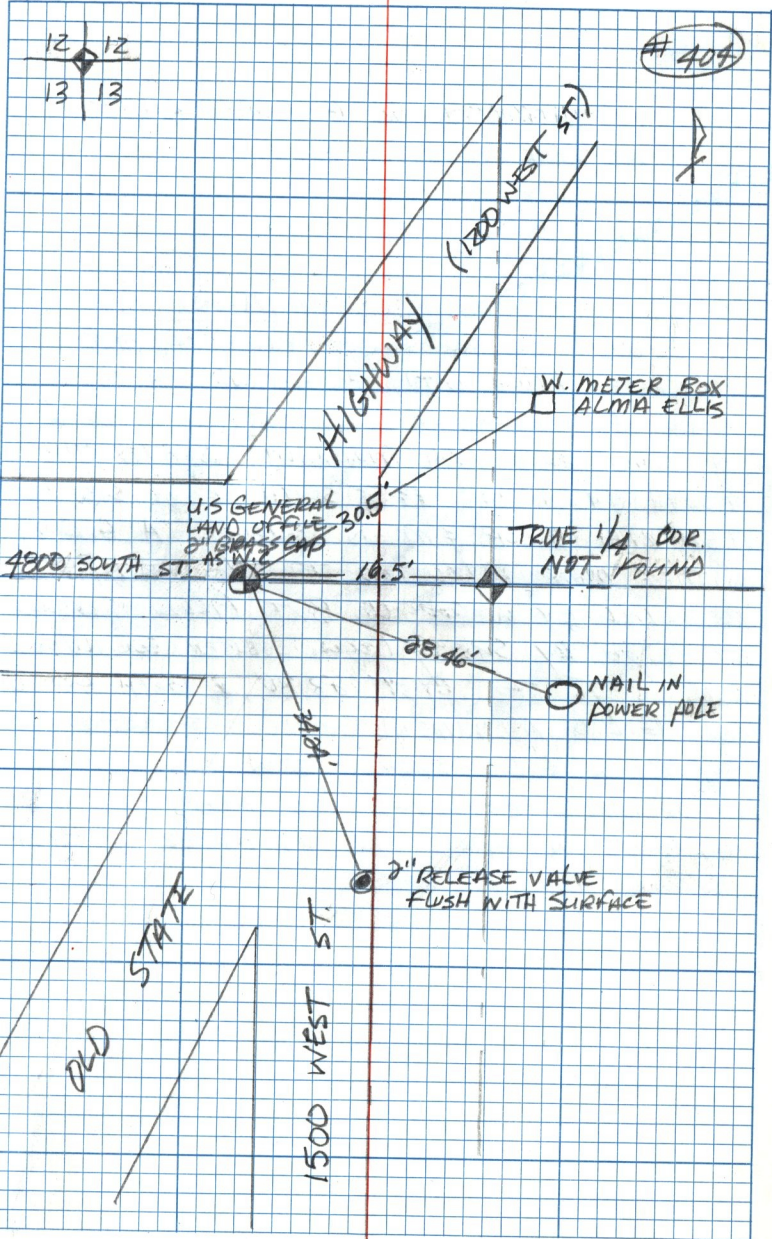 12 12
13 13
# 404
(1200 WEST ST.)
HIGHWAY
W. METER BOX
ALMA ELLIS
U.S GENERAL
LAND OFFICE
2" BRASS CAP
AS W.C
30.5'
4800 SOUTH ST.
16.5'
TRUE 1/4 COR.
NOT FOUND
28.46'
NAIL IN
POWER POLE
2" RELEASE VALVE
FLUSH WITH SURFACE
OLD STATE
1500 WEST ST.